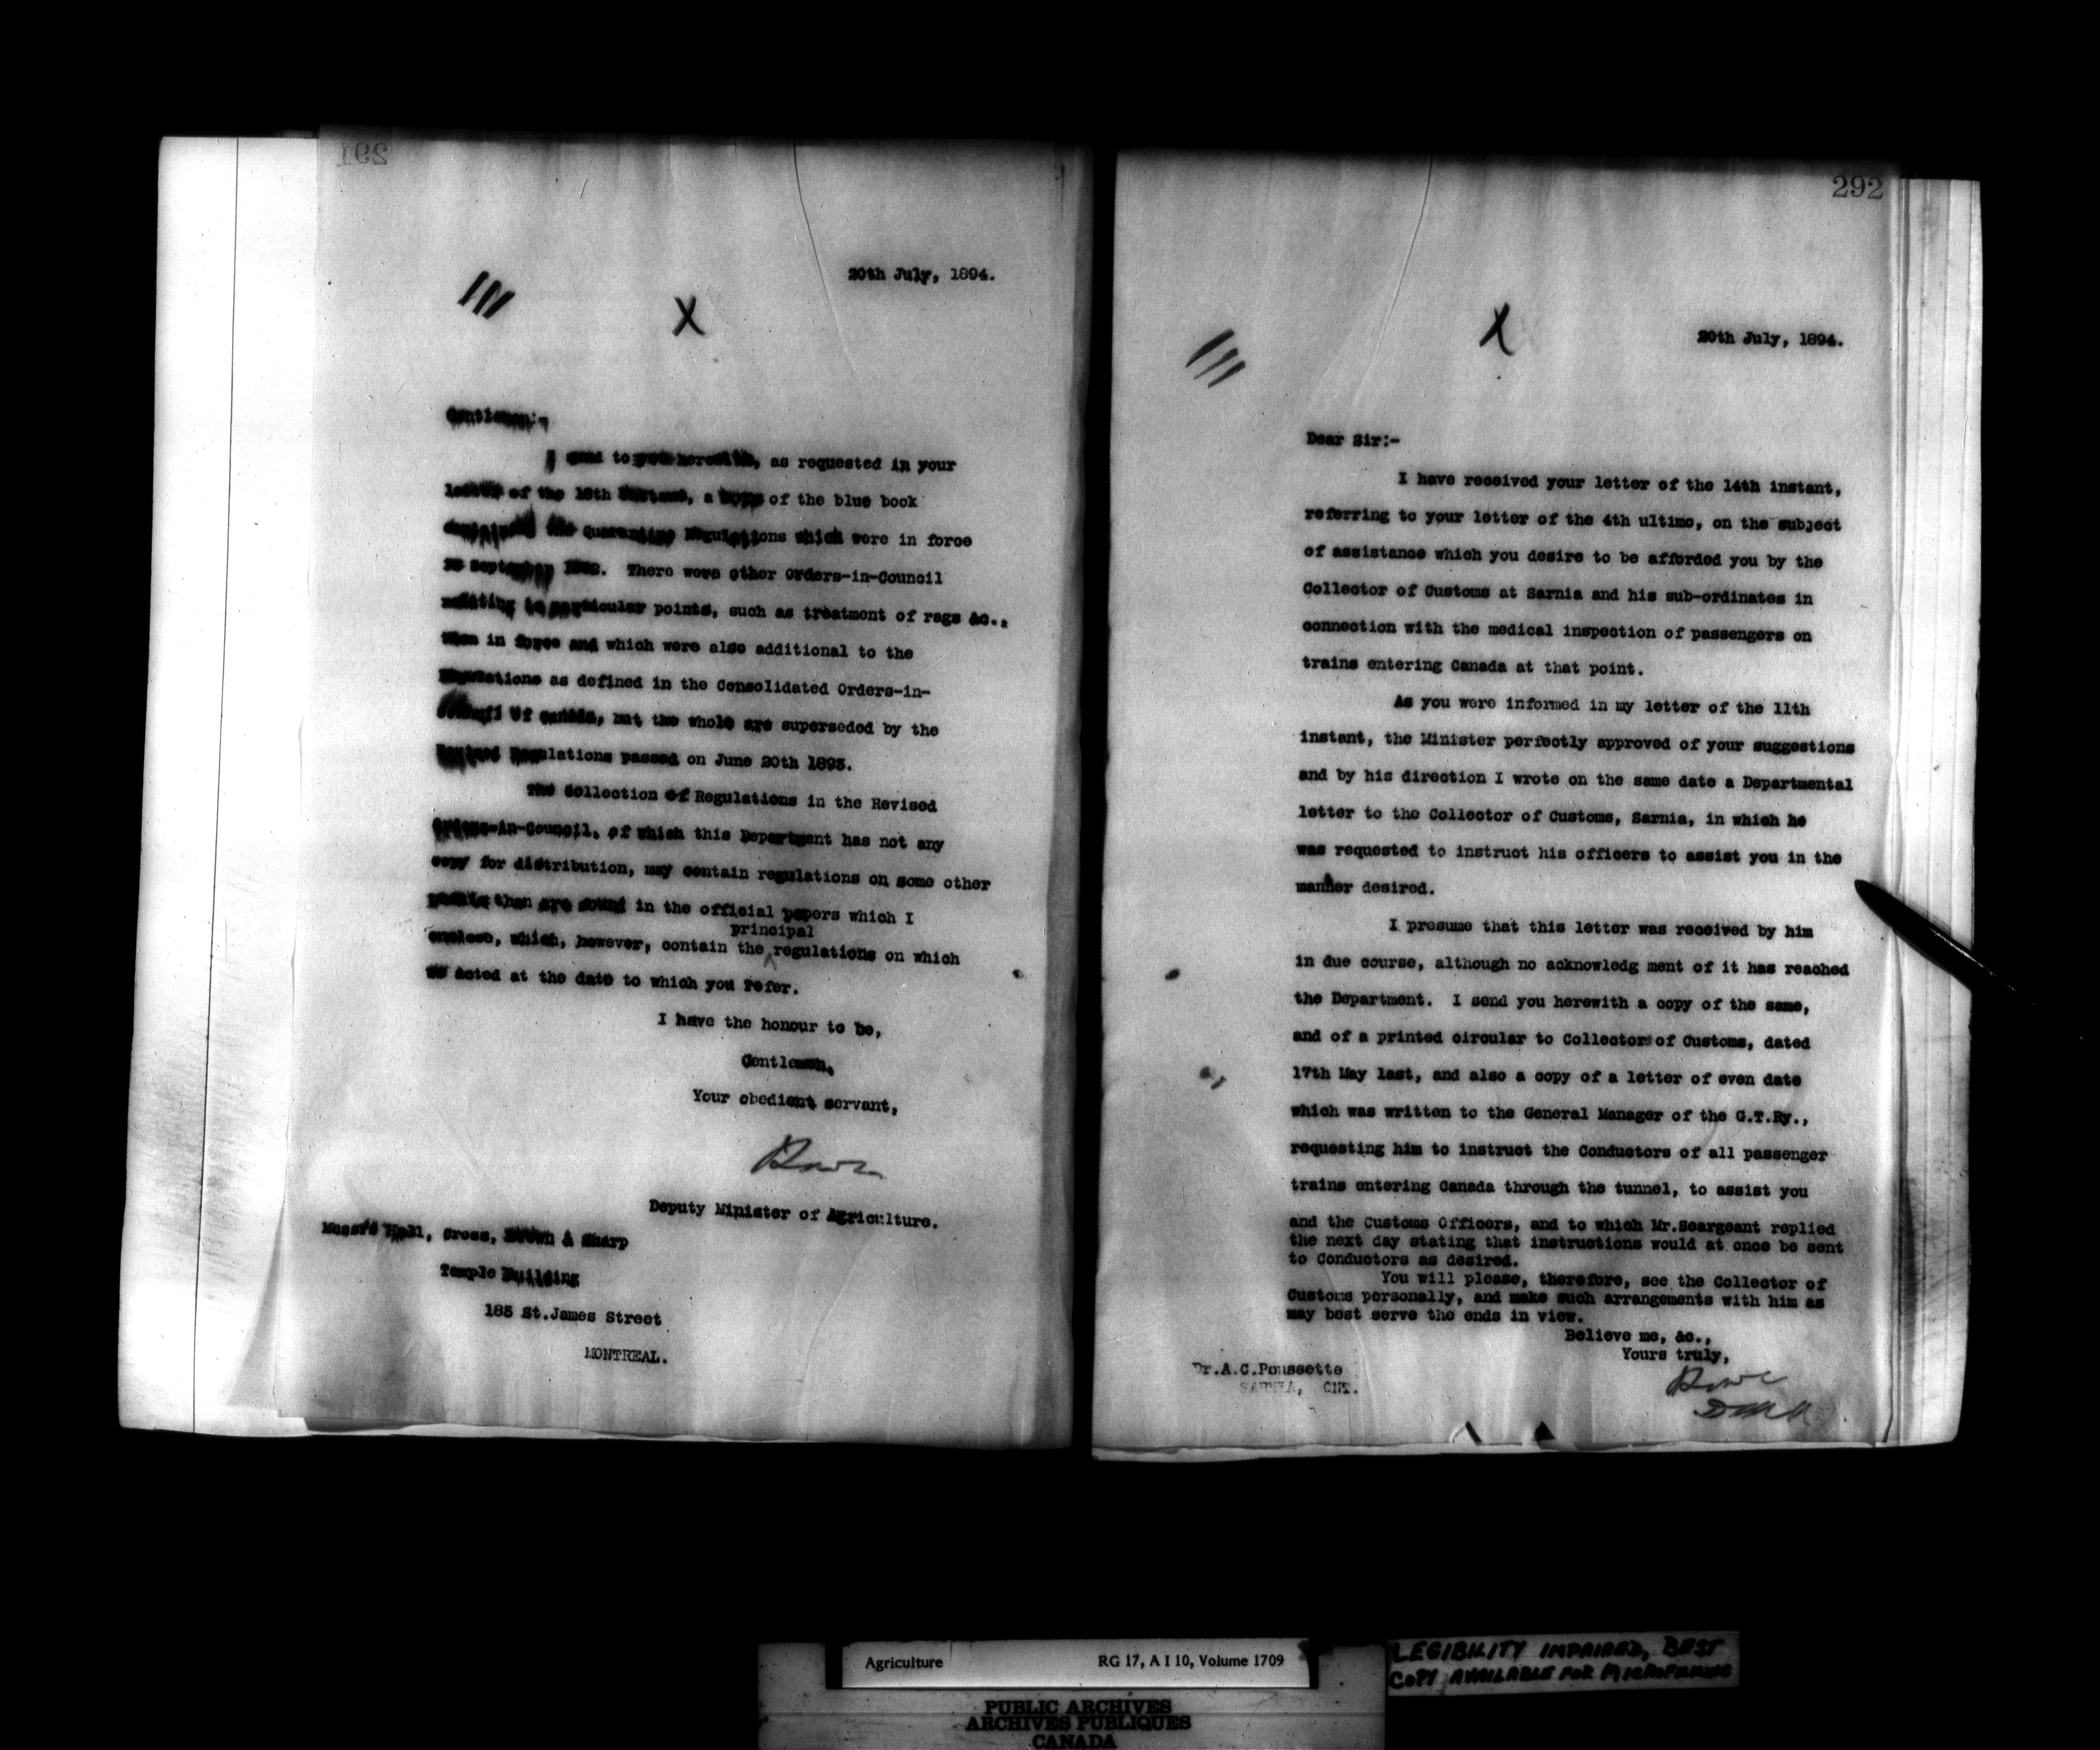 291
20th July, 1894.
X
Gentlemen:-
I send to you herewith, as requested in your
letter of the 18th instant, a copy of the blue book
containing the Quarantine Regulations which were in force
in September 1892. There were other Orders-in-Council
relating to particular points, such as treatment of rags &c.,
then in force and which were also additional to the
Regulations as defined in the Consolidated Orders-in-
Council of Canada, but the whole are superseded by the
Revised Regulations passed on June 20th 1893.
The Collection of Regulations in the Revised
Orders-in-Council, of which this Department has not any
copy for distribution, may contain regulations on some other
points than are found in the official papers which I
principal
enclose, which, however, contain the regulations on which
we acted at the date to which you refer.
I have the honour to be,
Gentlemen,
Your obedient servant,
Deputy Minister of Agriculture.
Messrs Hall, Cross, Brown & Sharp
Temple Building
185 St.James Street
MONTREAL.
292
X
20th July, 1894.
Dear Sir:-
I have received your letter of the 14th instant,
referring to your letter of the 4th ultimo, on the subject
of assistance which you desire to be afforded you by the
Collector of Customs at Sarnia and his sub-ordinates in
connection with the medical inspection of passengers on
trains entering Canada at that point.
As you were informed in my letter of the 11th
instant, the Minister perfectly approved of your suggestions
and by his direction I wrote on the same date a Departmental
letter to the Collector of Customs, Sarnia, in which he
was requested to instruct his officers to assist you in the
manner desired.
I presume that this letter was received by him
in due course, although no acknowledg ment of it has reached
the Department. I send you herewith a copy of the same,
and of a printed circular to Collectors of Customs, dated
17th May last, and also a copy of a letter of even date
which was written to the General Manager of the G.T.Ry.,
requesting him to instruct the Conductors of all passenger
trains entering Canada through the tunnel, to assist you
and the Customs Officers, and to which Mr.Seargeant replied
the next day stating that instructions would at once be sent
to Conductors as desired.
You will please, therefore, see the Collector of
Customs personally, and make such arrangements with him as
may best serve the ends in view.
Believe me, &c.,
Yours truly,
Dr.A.C.Poussette
SARNIA, ONT.
Agriculture RG 17, A I 10, Volume 1709
LEGIBILITY IMPAIRED, BEST
COPY AVAILABLE FOR MICROFILMING
PUBLIC ARCHIVES
ARCHIVES PUBLIQUES
CANADA